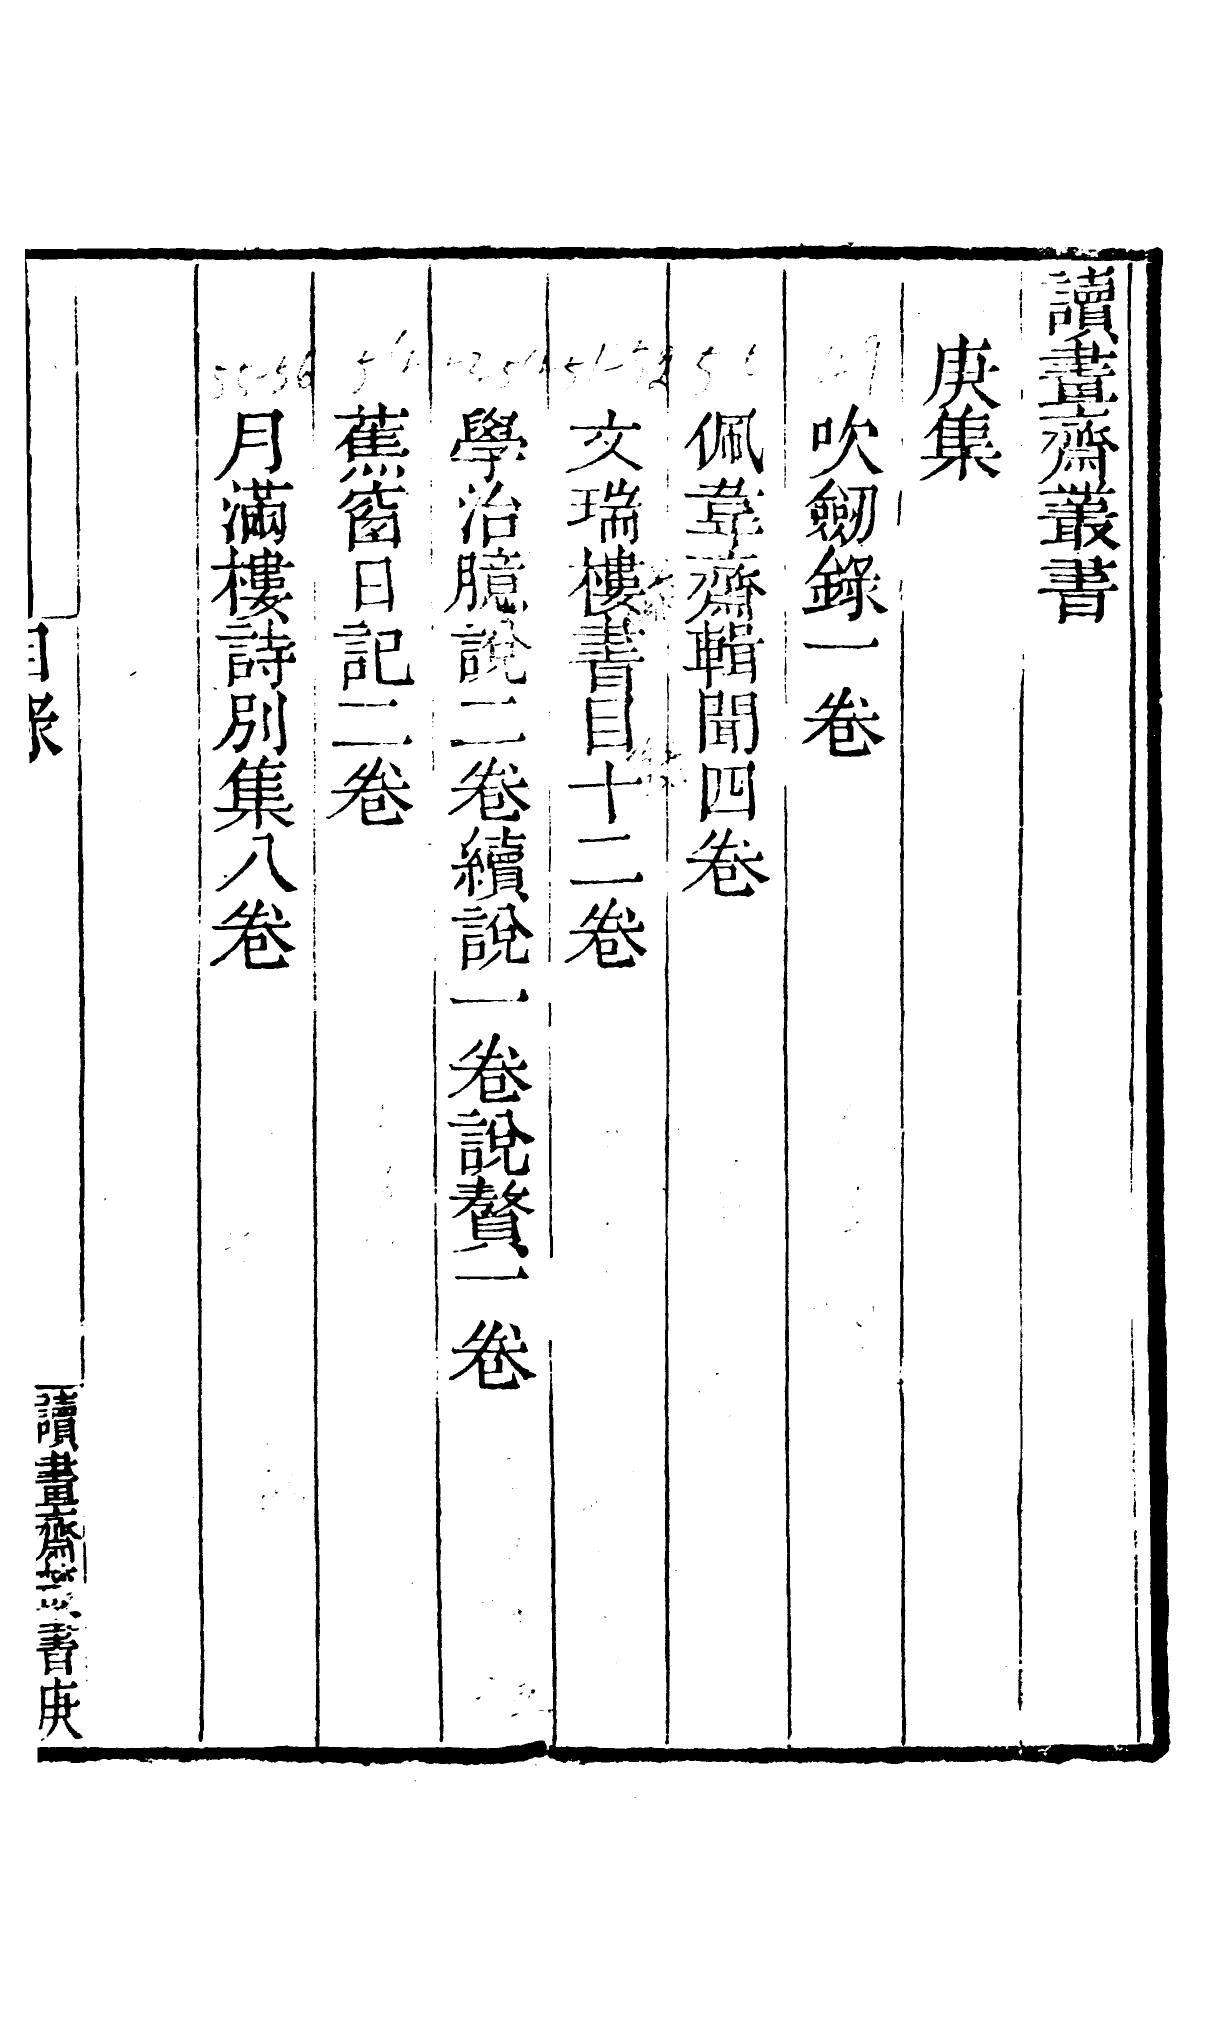 讀畫齋叢書
庚集
吹劒錄一卷
佩韋齋輯聞四卷
文瑞樓書目十二卷
學治臆說二卷續說一卷說贅一卷
蕉窗日記二卷
月滿樓詩別集八卷
55-56
51-52
目錄
讀畫齋叢書庚